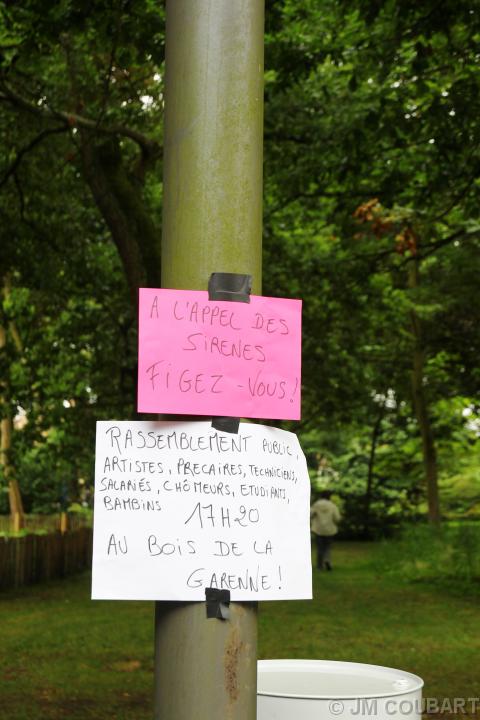 A L'APPEL DES
SIRENES
FIGEZ-VOUS!
RASSEMBLEMENT PUBLIC,
ARTISTES, PRECAIRES, TECHNICIENS,
SALARIÉS, CHÔMEURS, ETUDIANTS,
BAMBINS 17H20
AU BOIS DE LA
GARENNE!
© JM COUBART